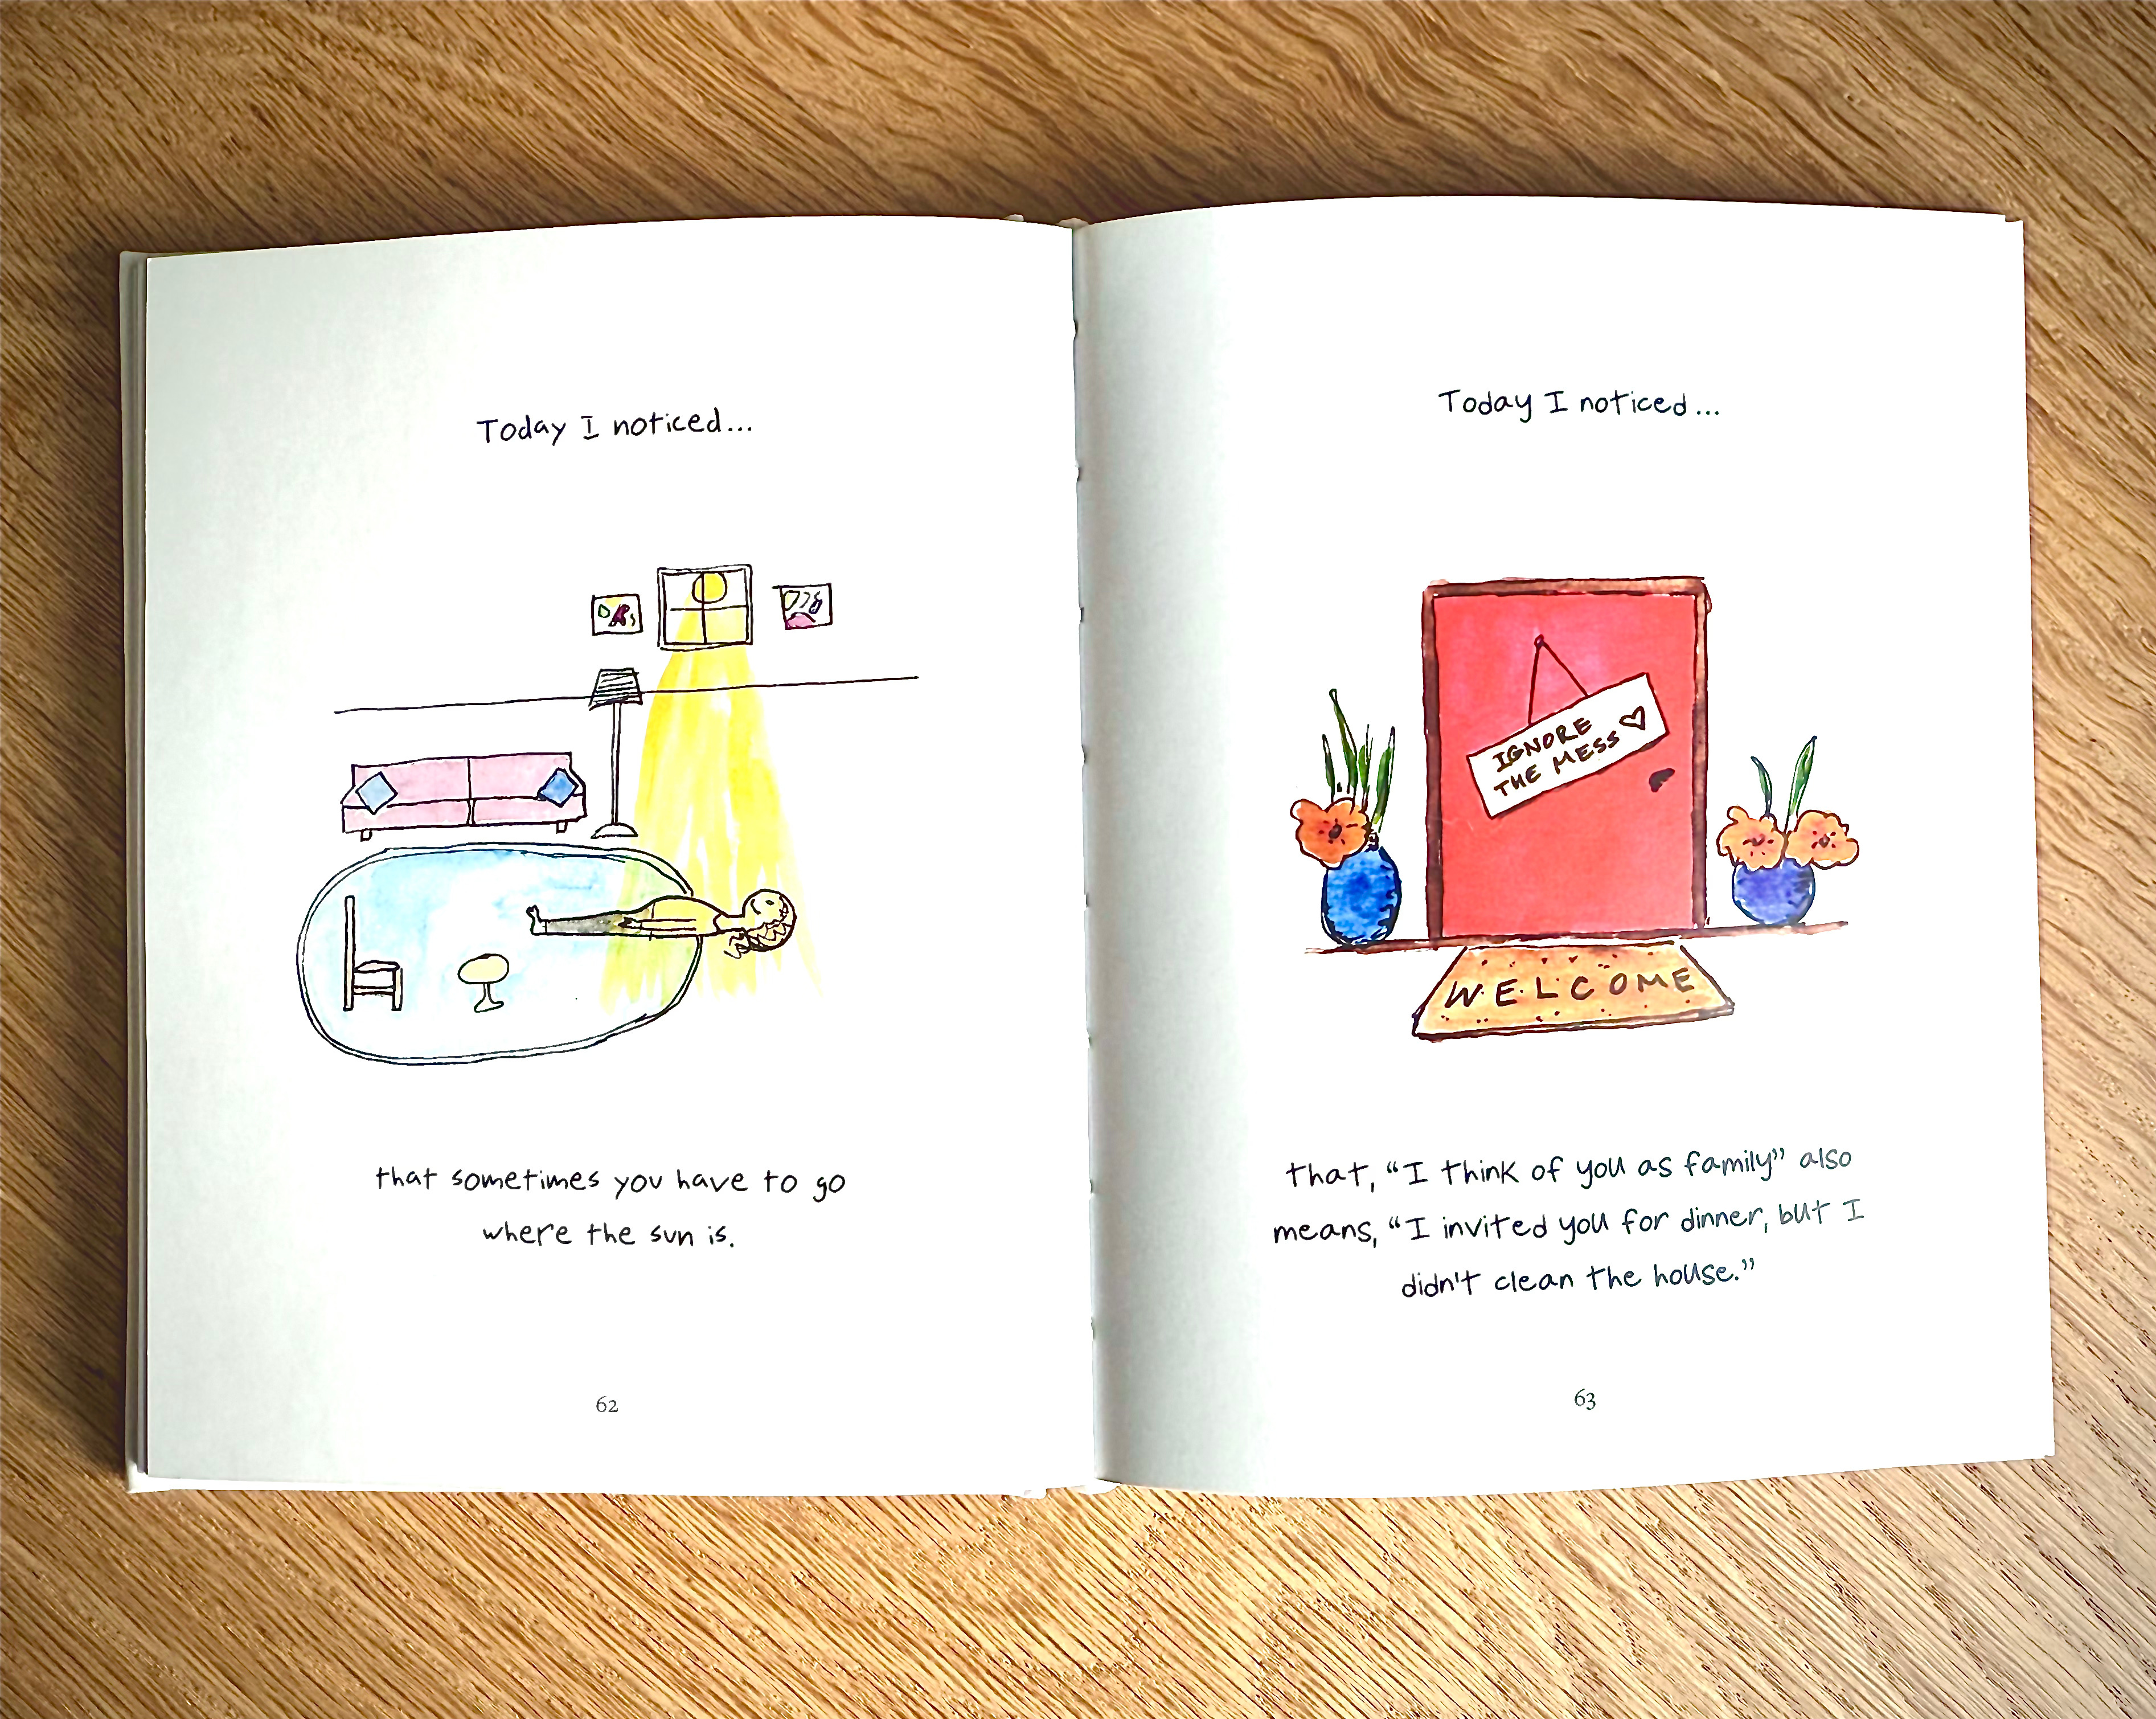 Today I noticed...
that sometimes you have to go
where the sun is.
62
Today I noticed...
IGNORE
THE MESS ♡
WELCOME
that, “I think of you as family” also
means, “I invited you for dinner, but I
didn't clean the house.”
63